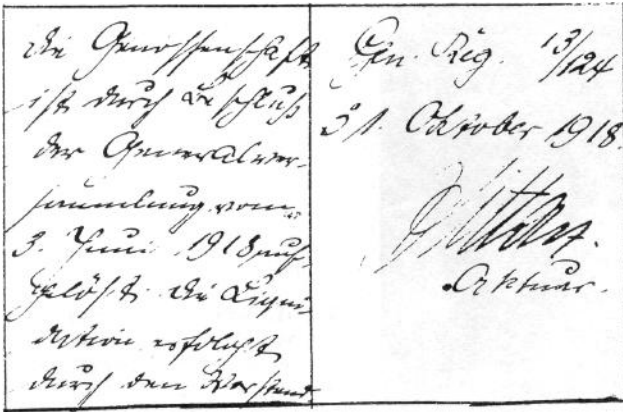 die Genossenschaft
ist durch Beschluß
der Generalver-
sammlung vom
3. Juni 1918 auf-
gelöst. Die Liqui-
dation erfolgt
durch den Vorstand
Gen. Reg. 13/124
31. Oktober 1918.
Aktuar.